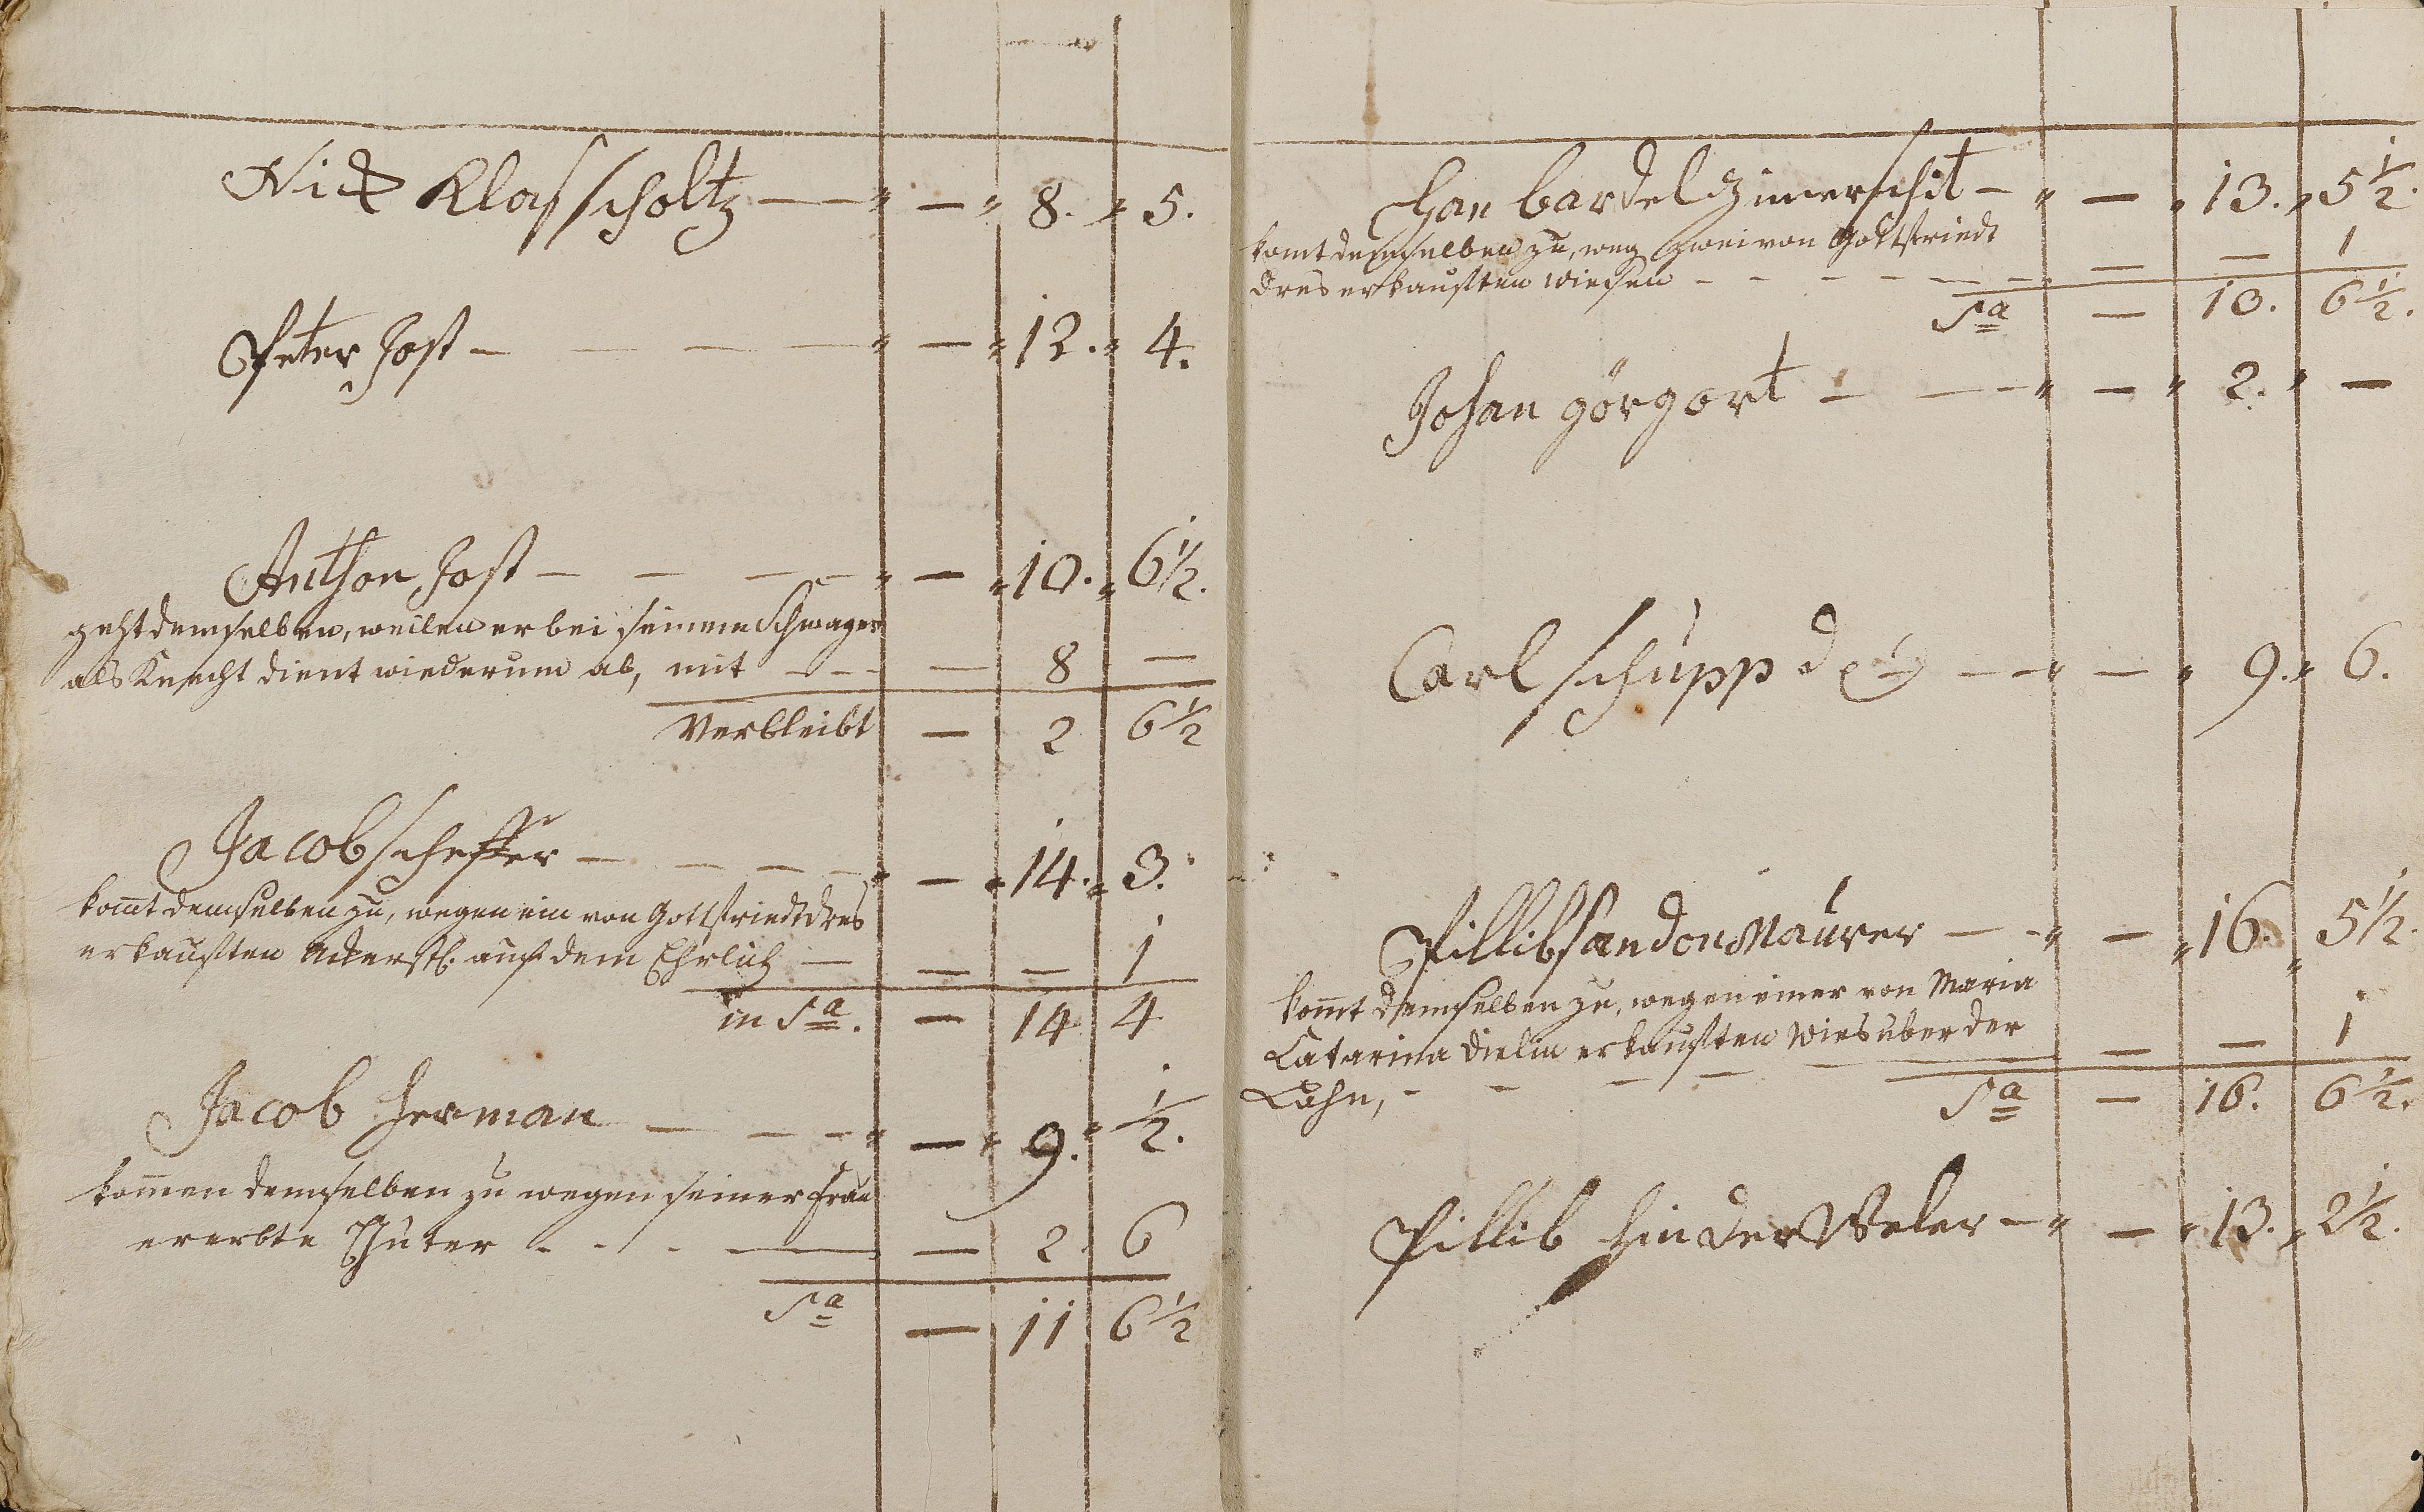 Nick Klasscholtz — — „ — „ 8. „ 5.
Peter Jost — — — — „ — „ 12. „ 4.
Anthon Jost — — — — „ — „ 10. „ 6½.
geht demselben, weilen er bei seinem Schwager
als Knecht dient wiederum ab, mit - - - — 8 —
Verbleibt — 2 6½
Jacob scheffer — — — „ — „ 14. „ 3.
komt demselben zu, wegen ein von Gottfriedt Dres
erkaufften Ackerst. auf dem — — — 1
in Sa. — 14 4
Jacob Herman — — — „ — „ 9. „ ½.
komen demselben zu wegen seiner Frau
ererbte Güter - - - — — 2 6
Sa — 11 6½
Han bardel Zimerschit — „ — „ 13. „ 5½.
komt demselben zu, weg zwei von Gottfriedt
Dres erkaufften Wiesen - - - - - — — 1
Sa — 13. 6½.
Johan görg ort — — — „ — „ 2. „ —
Carl schupp — — „ — „ 9. „ 6.
Pillibs an don Maurer — - „ — „ 16. „ 5½.
komt demselben zu, wegen einer von Maria
Catarina Dielin erkaufften Wies über der — — 1
Lahn, - - - - - Sa — 16. 6½.
Pillib hinder Weler — „ — „ 13. „ 2½.